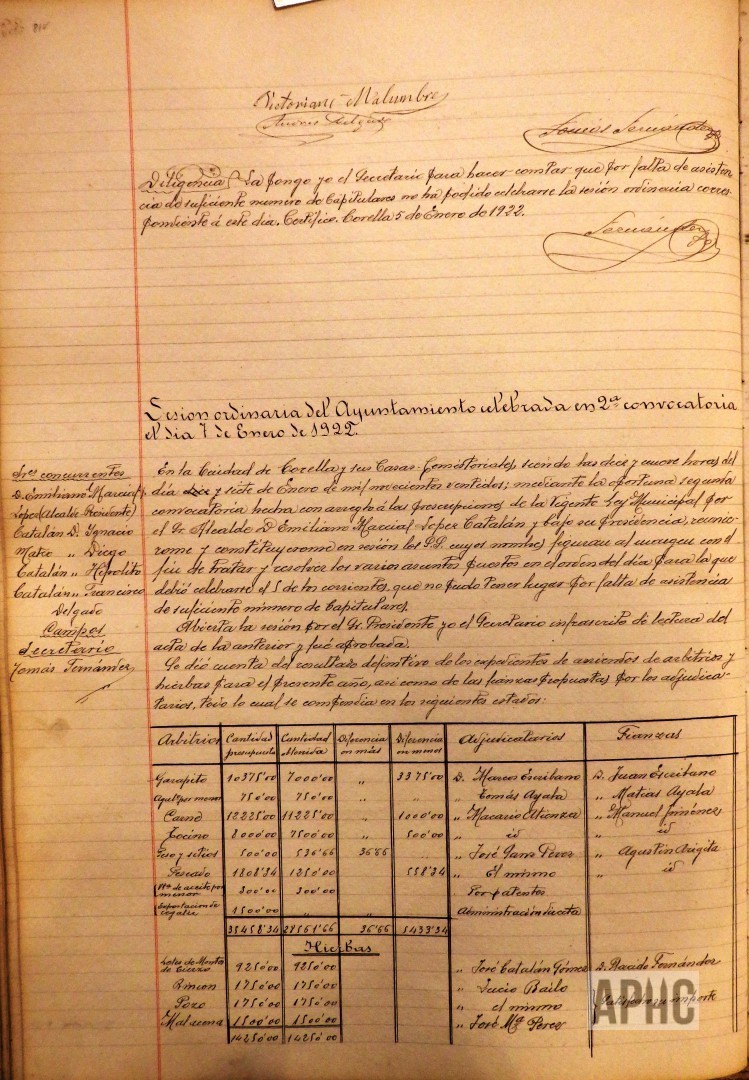 Victoriano Malumbres
Tomás Fernández
Diligencia La pongo yo el Secretario para hacer constar que por falta de asisten-
cia de suficiente numero de Capitulares no ha podido celebrarse la sesión ordinaria corres-
pondiente á este dia. Certifico. Corella 5 de Enero de 1922.
Fernández
Sesion ordinaria del Ayuntamiento celebrada en 2ª convocatoria
el dia 7 de Enero de 1922.
Sres concurrentes
D. Emiliano Marcial
López (Alcalde Presidente)
Catalán D. Ignacio
Mateo „ Diego
Catalán „ Hipolito
Catalán „ Francisco
Delgado
Campos
Secretario
Tomás Fernández
En la Ciudad de Corella y sus Casas Consistoriales, siendo las diez y nueve horas del
dia siete de Enero de mil novecientos ventidos; mediante la oportuna segunda
convocatoria hecha con arreglo á las prescripciones de la Vigente Ley Municipal por
el Sr. Alcalde D. Emiliano Marcial Lopez Catalán y bajo su Presidencia, reunie-
ronse y constituyeronse en sesión los S.S. cuyos nombres figuran al margen con el
fin de tratar y resolver los varios asuntos puestos en el orden del dia para la que
debió celebrarse el 5 de los corrientes, que no pudo tener lugar por falta de asistencia
de suficiente número de Capitulares.
Abierta la sesión por el Sr. Presidente yo el Secretario infrascrito dí lectura del
acta de la anterior y fué aprobada.
Se dió cuenta del resultado definitivo de los expedientes de arriendos de arbitrios y
hierbas para el presente año, así como de las fianzas propuestas por los adjudica-
tarios, todo lo cual se compendia en los siguientes estados:
Arbitrios Cantidad presupuesta Cantidad obtenida Diferencia en más Diferencia en menos Adjudicatarios Fianzas
Garapito 10375'00 7000'00 „ 3375'00 D. Marcos Escribano D. Juan Escribano
750'00 750'00 „ „ „ Tomás Ayala „ Matias Ayala
Carne 12225'00 11225'00 „ 1000'00 „ Macario Atienza „ Manuel Jiménez
Tocino 8000'00 7500'00 „ 500'00 „ id „ id
Peso y sitios 500'00 536'66 36'66 „ José Sanz Perez „ Agustín Arigita
Pescado 1808'34 1250'00 558'34 „ El mismo „ id
Vta de aceite por menor 300'00 300'00 Por patentes
Exportacion de 1500'00 „ „ Administración directa
35458'34 27561'66 36'66 5433'34
Hierbas
Lotes de Montes de Cierzo 9250'00 9250'00 „ José Catalán Gómez D. Placido Fernández
Rincon 1750'00 1750'00 „ Lucio Bailo
Pozo 1750'00 1750'00 „ el mismo
1500'00 1500'00 „ José Mª Perez
14250'00 14250'00
APHC